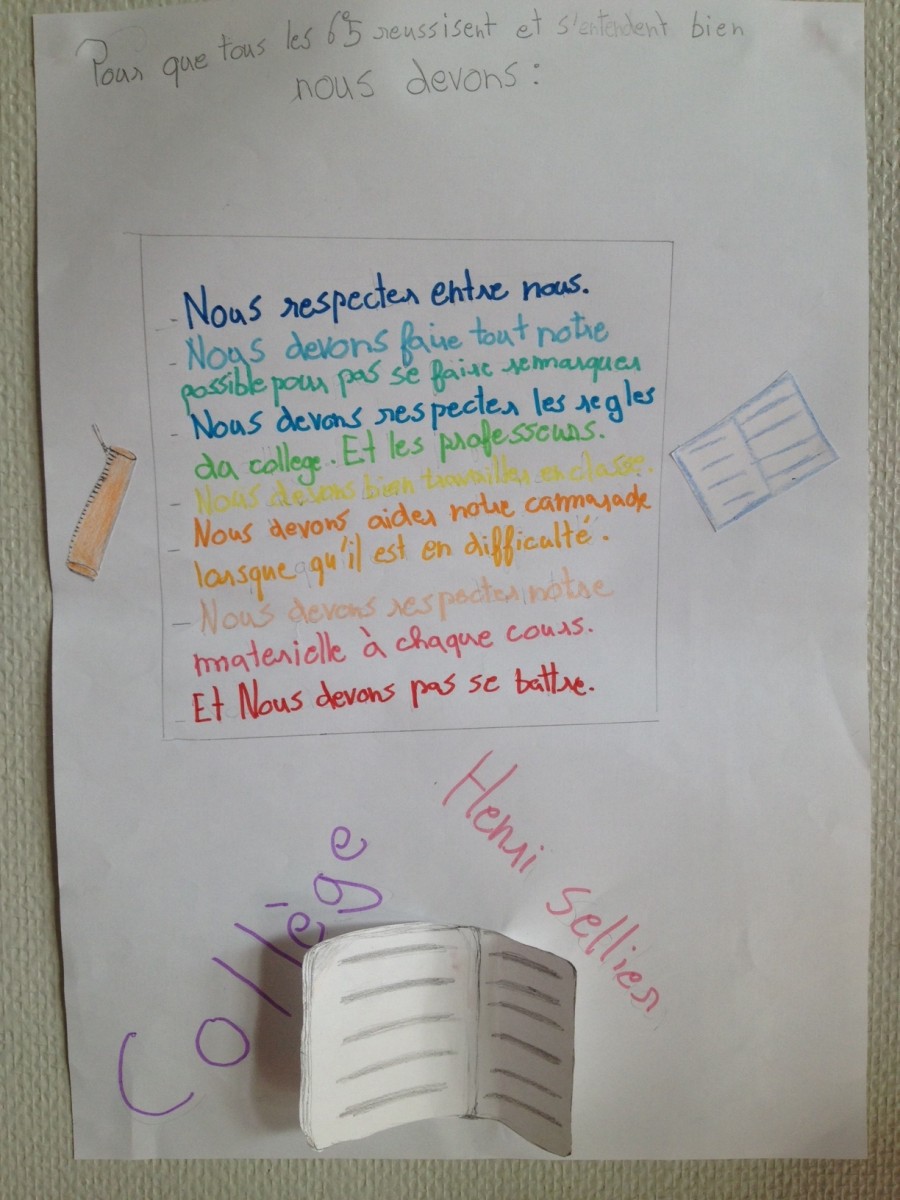 Pour que tous les 6e5 reussisent et s'entendent bien
nous devons :
- Nous respecter entre nous.
- Nous devons faire tout notre
possible pour pas se faire remarquer
- Nous devons respecter les regles
du college. Et les professeurs.
- Nous devons bien travailler en classe.
- Nous devons aider notre cammarade
lorsque qu'il est en difficulté.
- Nous devons respecter notre
materielle à chaque cours.
- Et Nous devons pas se battre.
Collège
Henri Sellier